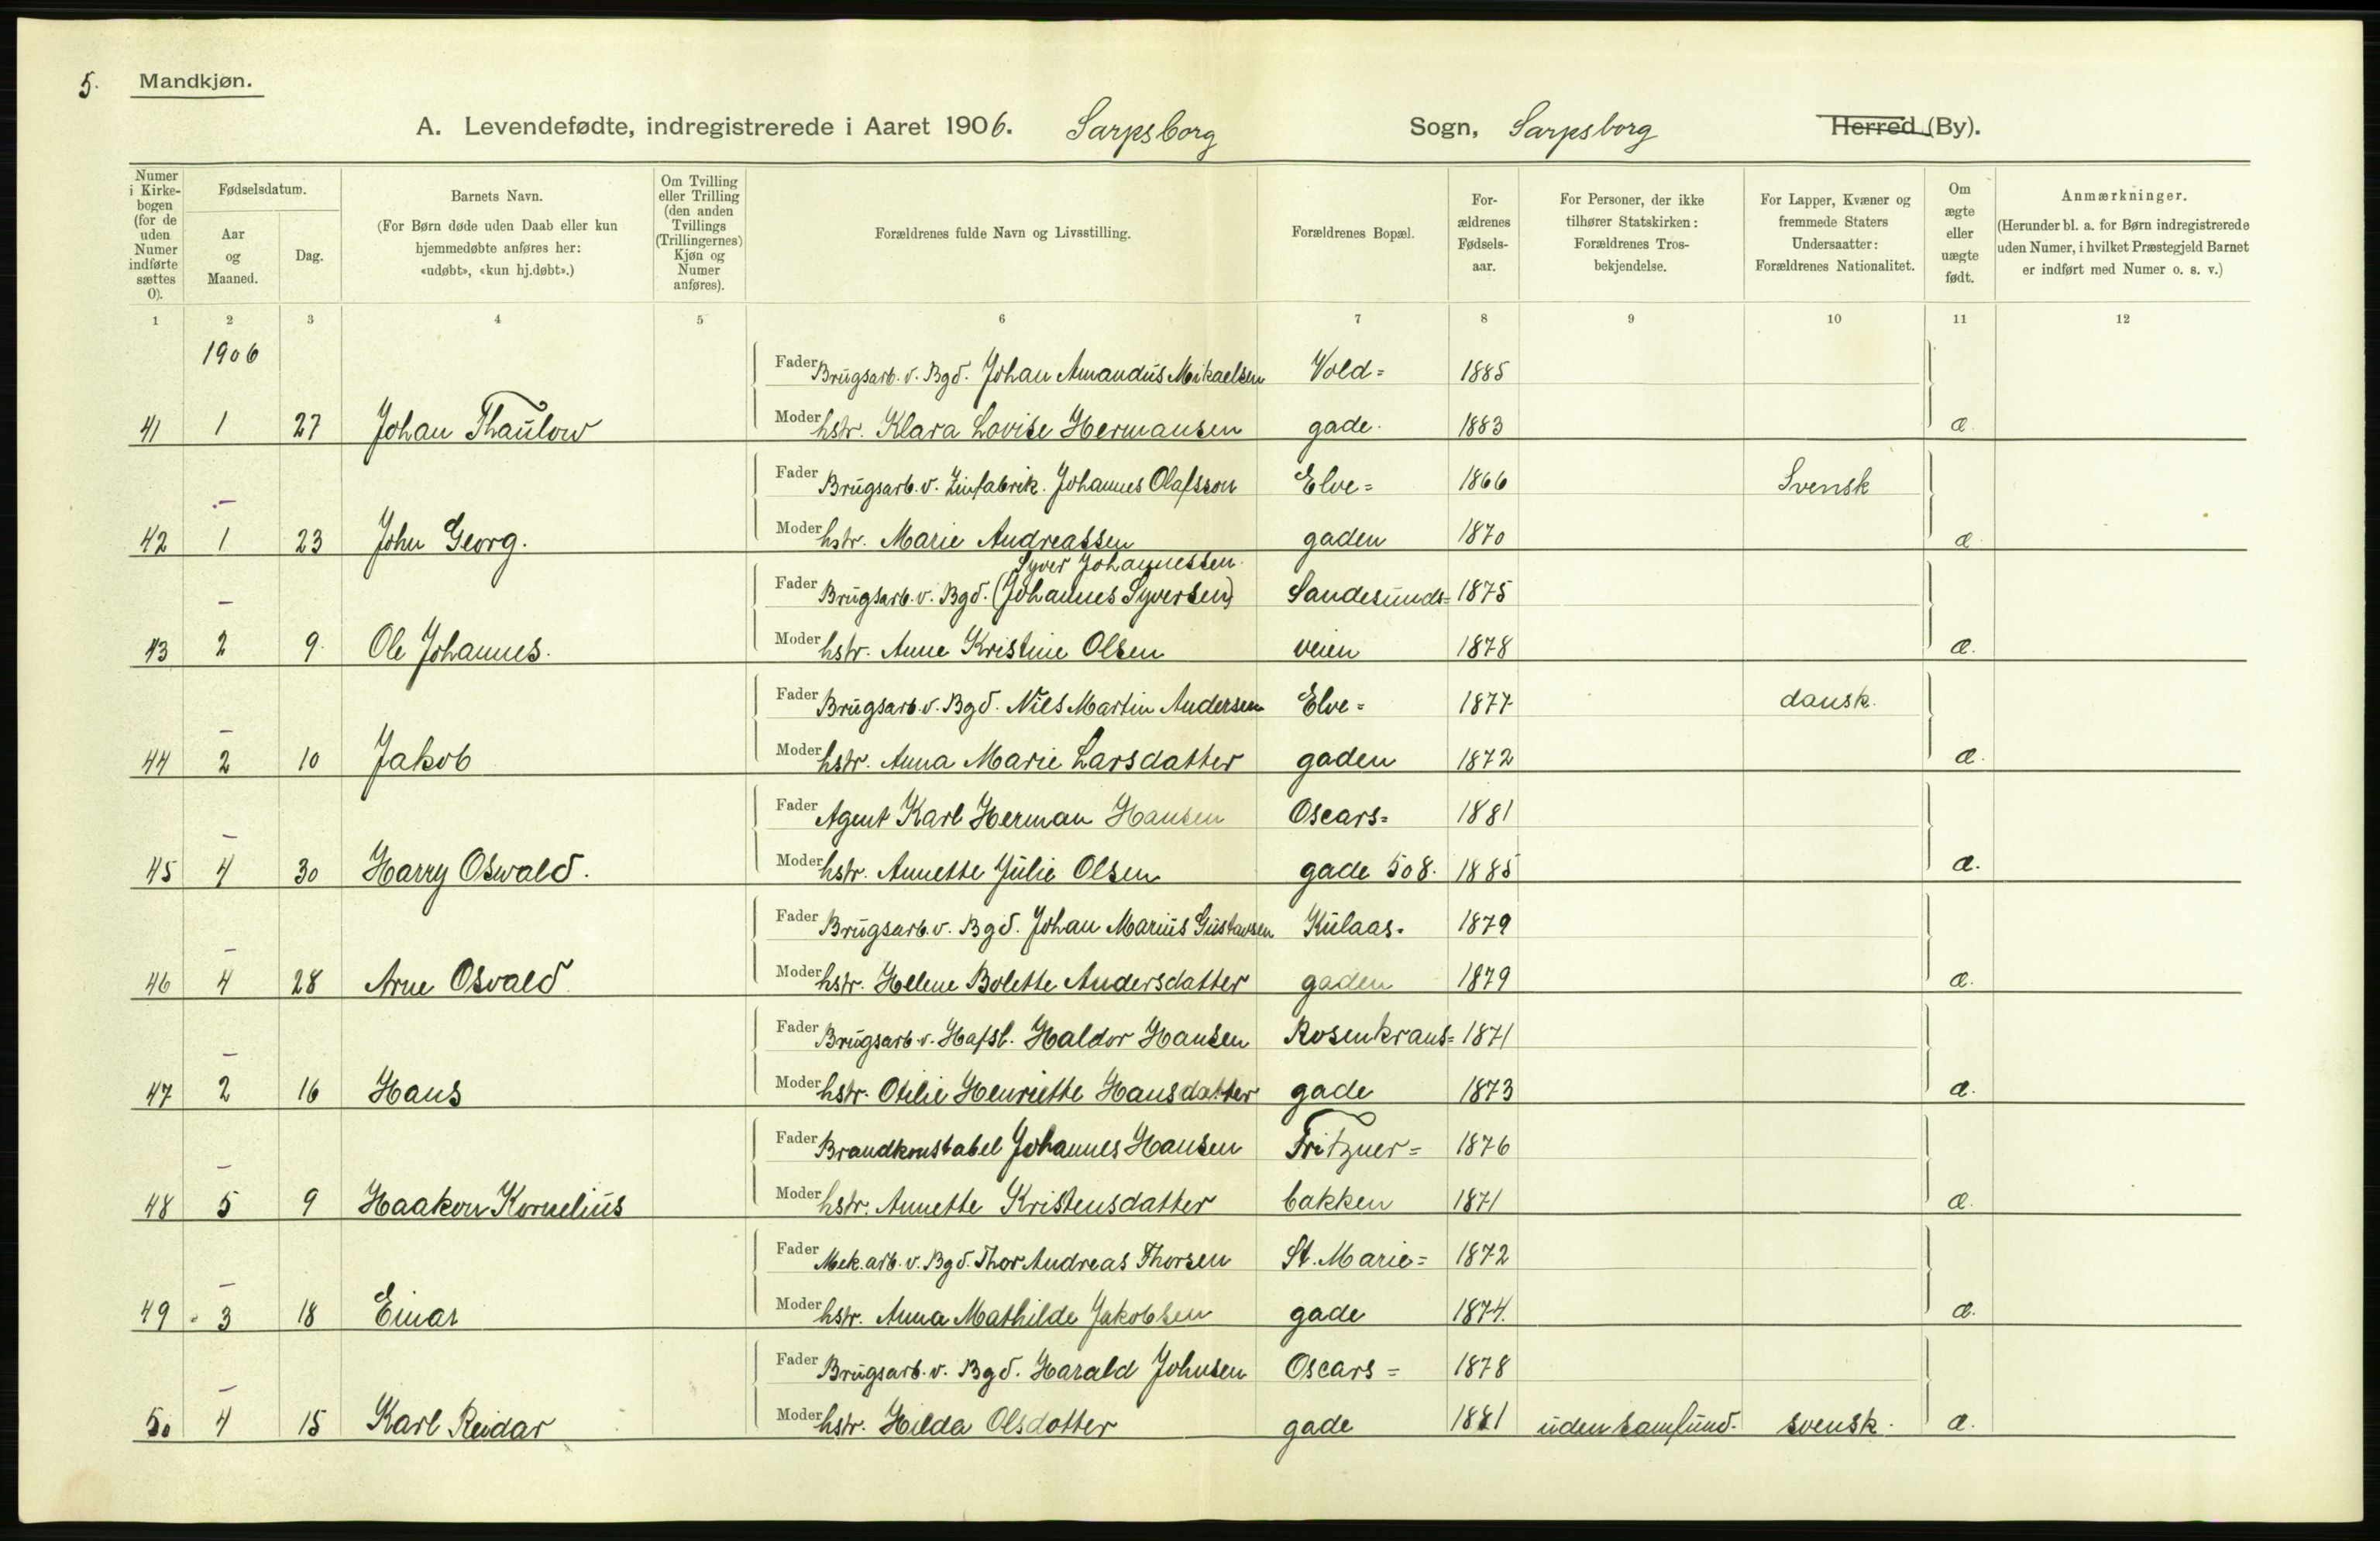 5. Mandkjøn.
A. Levendefødte, indregistrerede i Aaret 1906. Sarpsborg Sogn, Sarpsborg Herred (By).
Numer i Kirke- bogen (for de uden Numer indførte sættes 0).
Fødselsdatum.
Aar og Maaned.
Dag.
Barnets Navn.
(For Børn døde uden Daab eller kun
hjemmedøbte anføres her:
«udøbt», «kun hj.døbt».)
Om Tvilling
eller Trilling
(den anden
Tvillings
(Trillingernes)
Kjøn og
Numer
anføres).
Forældrenes fulde Navn og Livsstilling.
Forældrenes Bopæl.
For-
ældrenes
Fødsels-
aar.
For Personer, der ikke
tilhører Statskirken:
Forældrenes Tros-
bekjendelse.
For Lapper, Kvæner og
fremmede Staters
Undersaatter:
Forældrenes Nationalitet.
Om
ægte
eller
uægte
født.
Anmærkninger.
(Herunder bl. a. for Børn indregistrerede
uden Numer, i hvilket Præstegjeld Barnet
er indført med Numer o. s. v.)
1 2 3 4 5 6 7 8 9 10 11 12
1906
Fader Brugsarb. v. Bgd. Johan Amandus Mikaelsen Vold= 1885
41 1 27 Johan Thaulow Moder hstr. Klara Lovise Hermansen gade. 1883 æ
Fader Brugsarb. v. Zinfabrik. Johannes Olafsson Elve= 1866 Svensk
42 - 1 23 John Georg. Moder hstr. Marie Andreassen gaden 1870 æ
Syver Johannessen.
Fader Brugsarb. v. Bgd. (Johannes Syversen) Sandesunds= 1875
43 - 2 9. Ole Johannes. Moder hstr. Anne Kristine Olsen veien 1878 æ.
Fader Brugsarb. v. Bgd. Nils Martin Andersen Elve= 1877 dansk.
44 - 2 10 Jakob Moder hstr. Anna Marie Larsdatter gaden 1872 æ.
Fader Agent Karl Herman Hansen Oscars= 1881
45 - 4 30 Harry Oswald. Moder hstr. Annette Julie Olsen gade 508. 1885 æ.
Fader Brugsarb. v. Bgd. Johan Marius Gustavsen Kulaas- 1879
46 - 4 28 Arne Osvald Moder hstr. Helene Bolette Andersdatter gaden 1879 æ.
Fader Brugsarb. v. Hafsl. Haldor Hansen Rosenkrans= 1871
47 - 2 16 Hans Moder hstr. Otilie Henriette Hansdatter gade 1873 æ.
Fader Brandkonstabel Johannes Hansen Fritzner= 1876
48 - 5 9 Haakon Kornelius Moder hstr. Annette Kristensdatter bakken 1871 æ.
Fader Mek. arb. v. Bgd. Thor Andreas Thorsen St. Marie= 1872
49 - 3 18 Einar Moder hstr. Anna Mathilde Jakobsen gade 1874. æ.
Fader Brugsarb. v. Bgd. Harald Johnsen Oscars= 1878
50 - 4 15 Karl Reidar Moder hstr. Hilda Olsdotter gade 1881 uden samfund. svensk. æ.